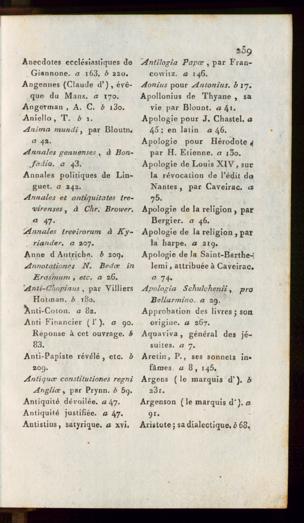 259
Anecdotes ecclésiastiques de
Giannone. a 163. b 220.
Angennes (Claude d'), évê-
que du Mans. a 170.
Angerman, A. C. b 130.
Aniello, T. b 1.
Anima mundi, par Blount.
a 42.
Annales genuenses, à Bon-
fadio. a 43.
Annales politiques de Lin-
guet. a 242.
Annales et antiquitates tre-
virenses, à Chr. Brower.
a 47.
Annales trevirorum à Ky-
riander. a 207.
Anne d'Autriche. b 209.
Annotationes N. Bedæ in
Erasmum, etc. a 26.
Anti-Chopinus, par Villiers
Hotman. b 180.
Anti-Coton. a 82.
Anti Financier (l'). a 90.
Réponse à cet ouvrage. b
83.
Anti-Papiste révélé, etc. b
209.
Antiquæ constitutiones regni
Angliæ, par Prynn. b 69.
Antiquité dévoilée. a 47.
Antiquité justifiée. a 47.
Antistius, satyrique. a xvi.
Antilogia Papæ, par Fran-
cowitz. a 146.
Aonius pour Antonius. b 17.
Apollonius de Thyane, sa
vie par Blount. a 41.
Apologie pour J. Chastel. a
45; en latin a 46.
Apologie pour Hérodote,
par H. Etienne. a 130.
Apologie de Louis XIV, sur
la révocation de l'édit de
Nantes, par Caveirac. a
76.
Apologie de la religion, par
Bergier. a 46.
Apologie de la religion, par
la harpe. a 219.
Apologie de la Saint-Barthe-
lemi, attribuée à Caveirac.
a 74.
Apologia Schulchenii, pro
Bellarmino. a 29.
Approbation des livres; son
origine. a 267.
Aquaviva, général des jé-
suites. a 7.
Aretin, P., ses sonnets in-
fâmes. a 8, 145.
Argens (le marquis d'). b
231.
Argenson (le marquis d'). a
91.
Aristote; sa dialectique. b 68.